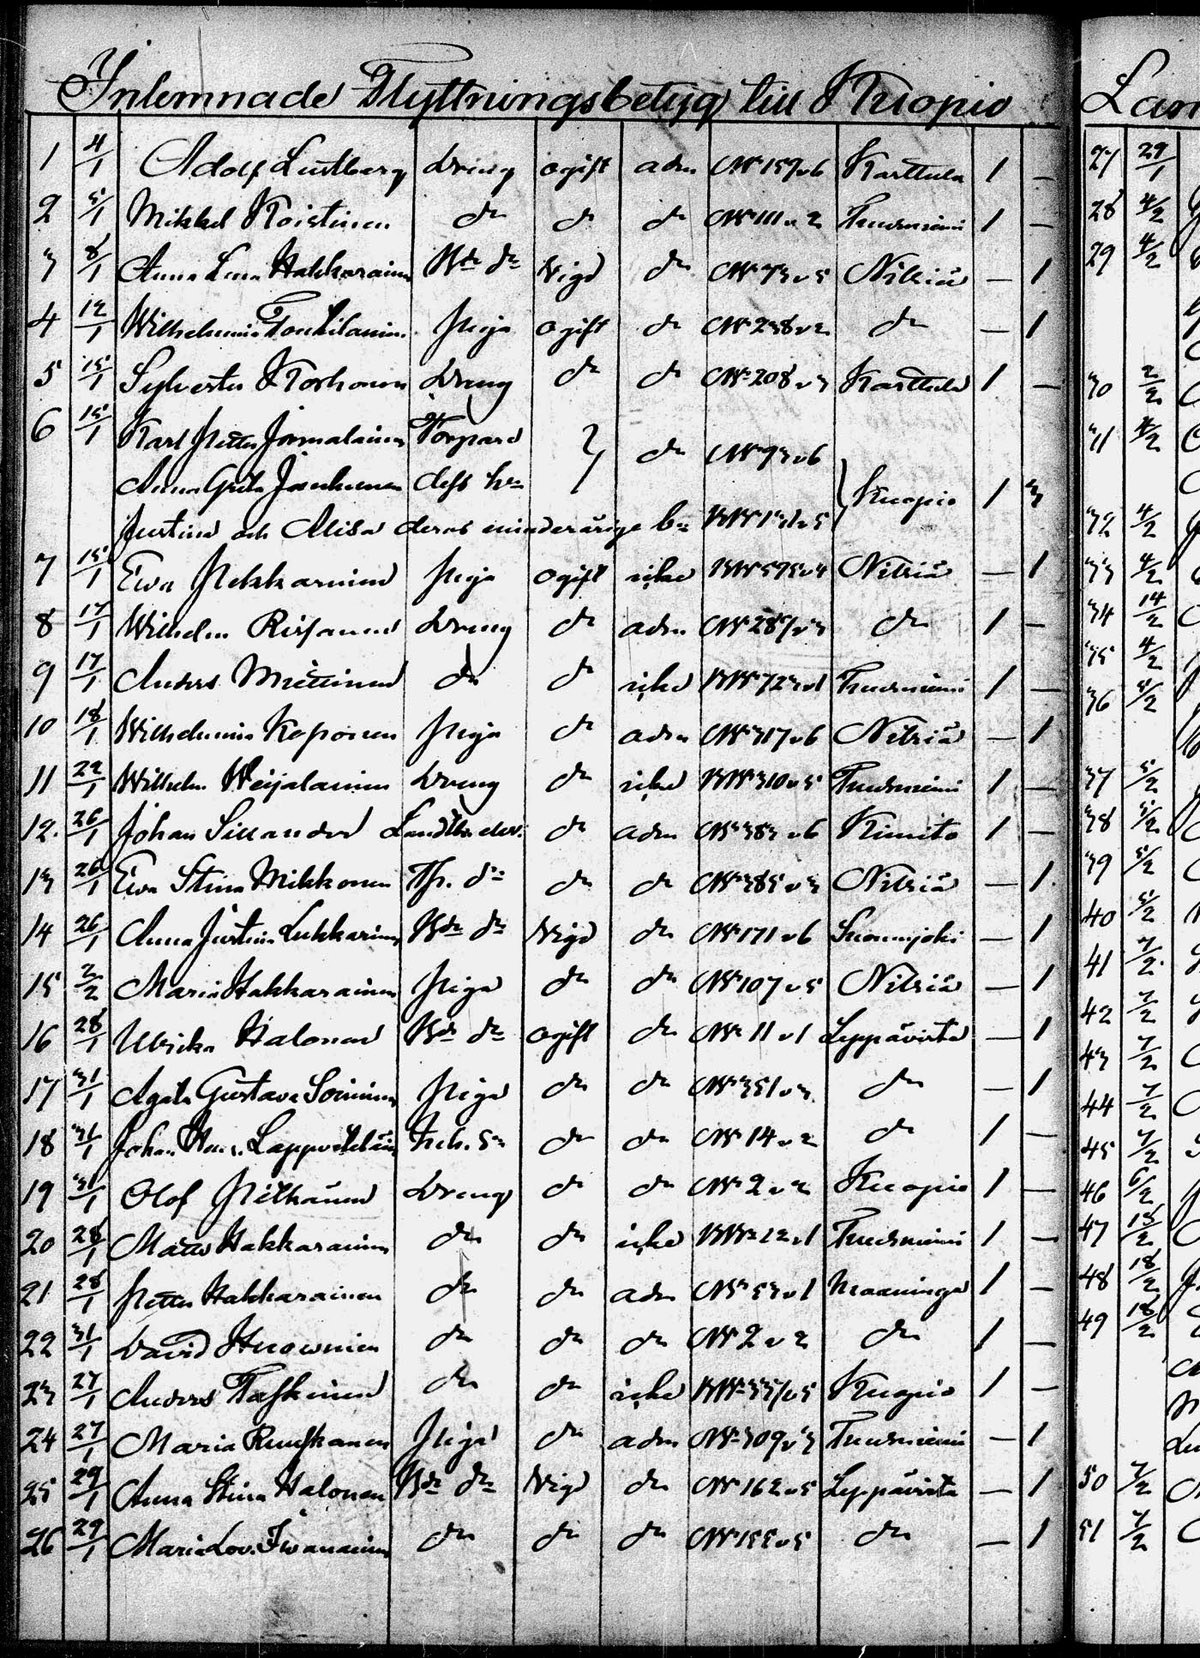 Inlemnade Flyttningsbetyg till Kuopio
1 4/1 Adolf Lustberg dreng ogift adm No 159 v 6 Karttula 1 —
2 5/1 Mikkel Koistinen do do do No 111 v 2 Tuusniemi 1 —
3 8/1 Anna Lena Hakkarainen Bde dr Vigd do No 73 v 5 Nilsiä — 1
4 12/1 Wilhelmina piga ogift do No 238 v 2 do — 1
5 15/1 Sylvester Korhonen dreng do do No 208 v 3 Karttula 1 —
6 15/1 Karl Petter Jormalainen Torpare do No 93 v 6
Anna Greta dess hu Kuopio 1 3
Justina och Alisa deras minderårige bn
7 15/1 Ewa Pekkarinen piga ogift icke No 595 v 4 Nilsiä — 1
8 17/1 Wilhelm dreng do adm No 287 v 3 do 1 —
9 17/1 Anders Miettinen do do icke No 723 v 1 Tuusniemi 1 —
10 18/1 Wilhelmina Koponen piga do adm No 317 v 6 Nilsiä — 1
11 22/1 Wilhelm Weijalainen dreng do icke No 310 v 5 Tuusniemi 1 —
12. 26/1 Johan Sillander do adm No 383 v 6 Kimito 1 —
13 26/1 Ewa Stina Mikkonen Tp. dr do do No 385 v 3 Nilsiä — 1
14 26/1 Anna Justina Lukkarinen Bde dr Vigd do No 171 v 6 Suonnjoki — 1
15 2/2 Maria Hakkarainen Piga do do No 107 v 5 Nilsiä — 1
16 28/1 Ulrika Halonen Bde dr ogift do No 11 v 1 Leppävirta — 1
17 31/1 Agata Gustava Soininen Piga do do No 351 v 3 do — 1
18 31/1 Johan do do No 14 v 2 do 1 —
19 31/1 Olof Pitkänen dreng do do No 2 v 2 Kuopio 1 —
20 28/1 Matts Hakkarainen do do icke No 22 v 1 Tuusniemi 1 —
21 28/1 Petter Hakkarainen do do adm No 53 v 1 Maaninga 1 —
22 31/1 David do do do No 2 v 2 do 1 —
23 27/1 Anders Taskinen do do icke No 357 v 5 Kuopio 1 —
24 27/1 Maria Ruuskanen Piga do adm No 309 v 3 Tuusniemi — 1
25 29/1 Anna Stina Halonen Bde dr Vigd do No 162 v 5 Leppävirta — 1
26 29/1 Maria Lov. Iivanainen do do do No 155 v 5 do — 1
Lan
27 29/1
28 4/2
29 4/2
30 2/2
31 4/2
32 4/2
33 4/2
34 14/2
35 4/2
36 5/2
37 5/2
38 5/2
39 5/2
40 5/2
41 7/2
42 7/2
43 7/2
44 7/2
45 7/2
46 6/2
47 18/2
48 18/2
49 18/2
50 7/2
51 7/2